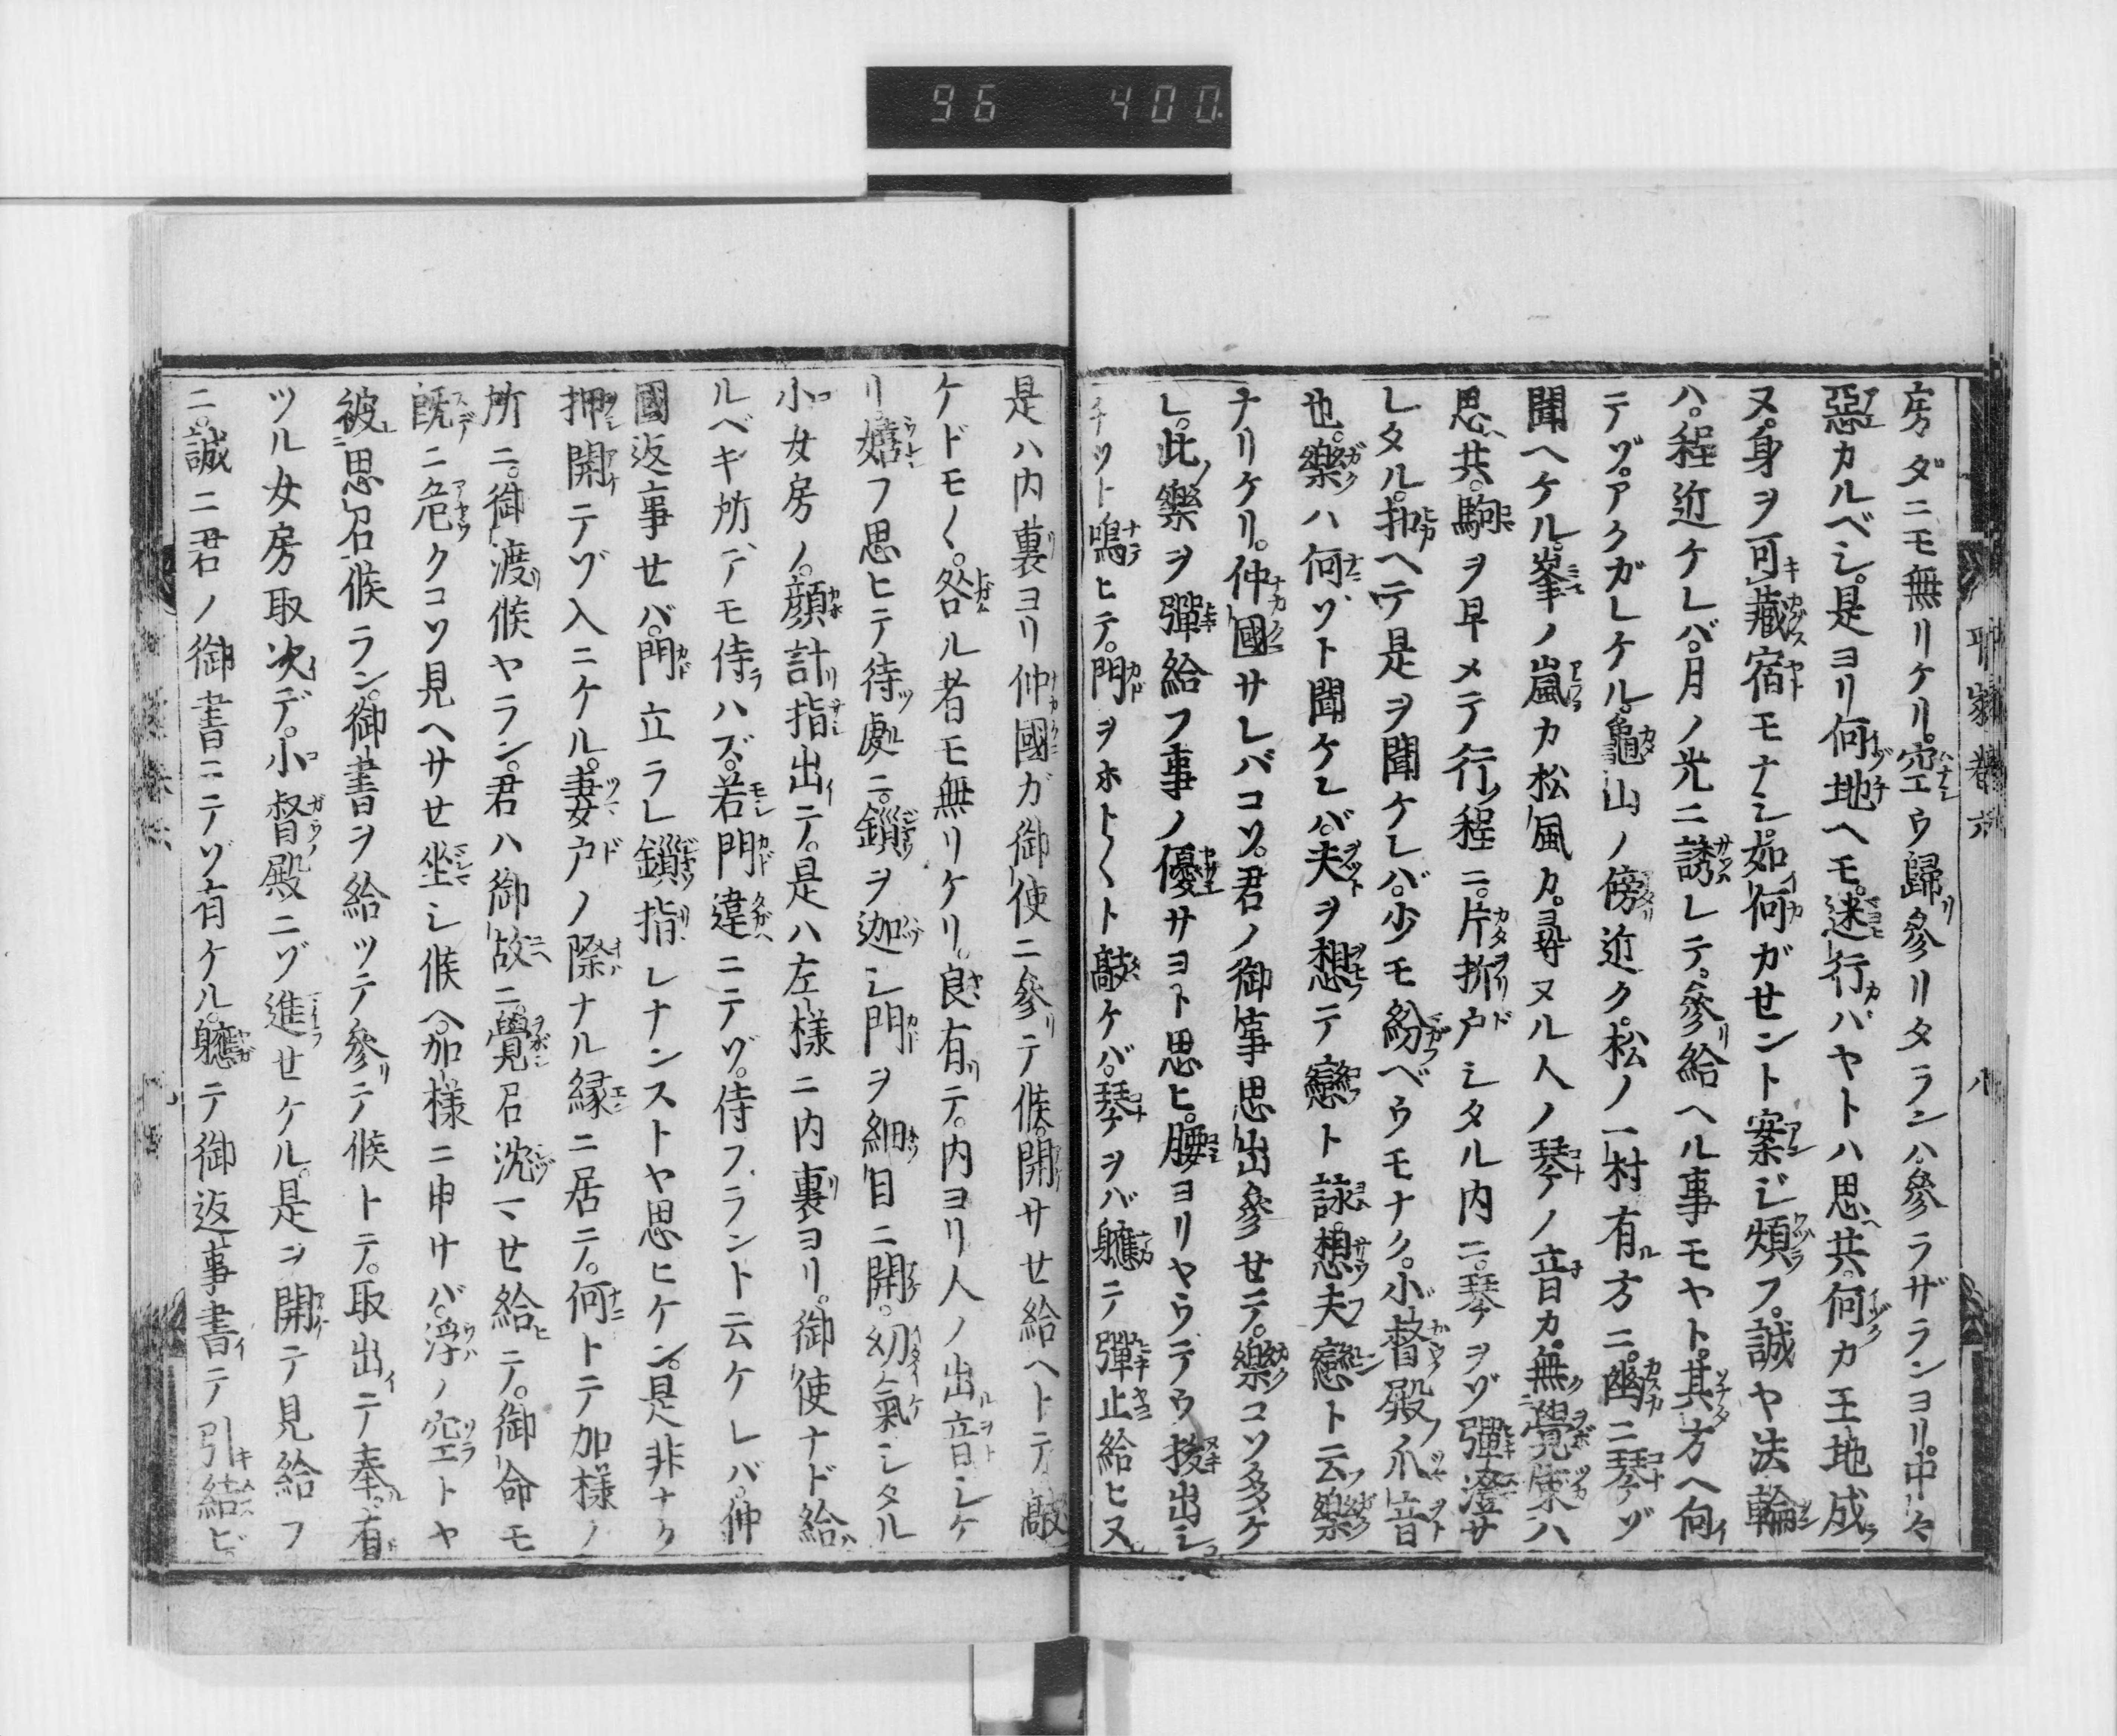 96 400
平家巻六 八
房ダニモ無リケリ。空ウ歸リ參リタランハ參ラザランヨリ。中々
惡カルベシ。是ヨリ何地ヘモ。迷行カバヤトハ思ヘ共。何カ王地成ラ
ヌ。身ヲ可藏宿モナシ。如何ガセント案ジ煩フ。誠ヤ法輪
ハ。程近ケレバ。月ノ光ニ誘レテ。參リ給ヘル事モヤト。其方ヘ向イ
テゾ。アクガレケル。龜山ノ傍近ク。松ノ一村有ル方ニ。幽ニ琴ゾ
聞ヘケル。峯ノ嵐カ松風カ。尋ヌル人ノ琴ノ音カ。無覺束ハ
思ヘ共。駒ヲ早メテ行ノ程ニ。片折戸シタル内ニ。琴ヲゾ彈澄サ
レタル。抑ヘテ是ヲ聞ケレバ。少モ紛ベウモナク。小督殿ノ爪音
也。樂ハ何ゾト聞ケレバ。夫ヲ想テ戀ト詠。想夫戀ト云フ樂
ナリケリ。仲國サレバコソ。君ノ御事思出參せテ。樂コソ多ケ
レ。此ノ樂ヲ彈給フ事ノ優サヨト思ヒ。腰ヨリヤウデウ拔出シ
チツト鳴ヒテ。門ヲホト〳〵ト敲ケバ。琴ヲバ軈テ彈止給ヒヌ。
是ハ内裏ヨリ仲國ガ御使ニ參リテ候。開サせ給ヘトテ敲
ケドモ〳〵。咎ル者モ無リケリ。良有リテ。内ヨリ人ノ出ル音シケ
リ。嬉フ思ヒテ待ツ處ニ。鎖ヲ迦シ門ヲ細目ニ開。幼氣シタル
小女房ノ。顔計リ指出イテ。是ハ左樣ニ内裏ヨリ。御使ナド給ハ
ルベキ所デモ侍ラハズ。若門違ニテゾ。侍フラント云ケレバ。仲
國返事せバ。門立ラレ鎖指レナンストヤ思ヒケン。是非ナク
押開ケテゾ入ニケル。妻戸ノ際ナル縁ニ居テ。何トテ加樣ノ
所ニ。御渡リ候ヤラン。君ハ御故ニ。覺召沈マせ給ヒテ。御命モ
既ニ危クコソ見ヘサせ坐シ候ヘ。加樣ニ申サバ。浮ノ空トヤ
被思召候ラン。御書ヲ給ツテ參リテ候トテ。取出イテ奉ル。有
ツル女房取次イデ。小督殿ニゾ進せケル。是ヲ開テ見給フ
ニ。誠ニ君ノ御書ニテゾ有ケル。軈テ御返事書イテ引キ結ビ。